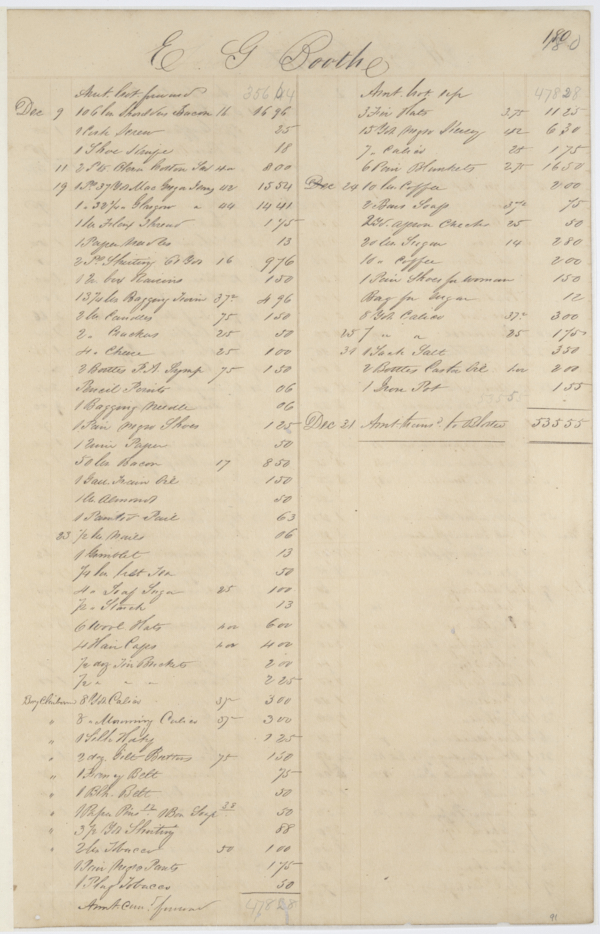 180
E G Booth
Amt. bot forward 356 44
Dec 9 106 lbs Shoulder Bacon 16 16 96
1 Cork Screw 25
1 Shoe 18
11 2 40 8 00
19 42 15 54
1 " Glasgow " 44 14 41
1 lb Flax Thread 1 75
1 Paper Needles 13
2 Ps Shirting 61 Yds 16 9 76
1 1 50
Bagging Twine 37 4 96
2 lbs Candles 75 1 50
2 " 25 50
4 " Cheese 25 1 00
2 Bottles 75 1 50
06
1 Bagging Needle 06
1 Pair Negro Shoes 1 25
1 Quire Paper 50
50 lbs Bacon 17 8 50
1 Gall Train Oil 1 50
1 lb Almonds 50
1 Painted Pail 63
23 1/2 lb Nails 06
1 Gimblet 13
1/4 lb best Tea 50
4 " Loaf Sugar 25 1 00
1/2 " Starch 13
6 Wool Hats 6 00
4 Hair Caps 4 00
1/2 doz Tin Buckets 2 00
1/2 " " " 2 25
8 Yds Calico 37 3 00
" 8 " Mourning Calico 37 3 00
" 1 Silk Hdkf 1 25
" 2 doz Gilt Buttons 75 1 50
" 1 Belt 75
" 1 Blk. Belt 50
" 1 Paper Pins 12 1 Box Soap 38 50
" 3 1/2 Yds Shirting 88
" 2 lbs Tobacco 50 1 00
1 Pair Negro Pants 1 75
1 Plug Tobacco 50
Amt. forward 478 28
Amt. bot up 478 28
3 Fur Hats 3.75 11 25
15 Yds Negro Kersey 42 6 30
7 " Calico 25 1 75
6 Pair Blankets 2.75 16 50
Dec 24 10 lbs Coffee 2 00
2 Bars Soap 37 75
2 Yd. Apron Checks 25 50
20 lbs Sugar 14 2 80
10 " Coffee 2 00
1 Pair Shoes for woman 1 50
Bag for Sugar 12
8 Yds Calico 37 3 00
25 7 " " 25 1 75
1 Sack Salt 3 50
2 Bottles Castor Oil 2 00
1 Iron Pot 1 55
Dec 31 Amt. trans. to 535 55
91